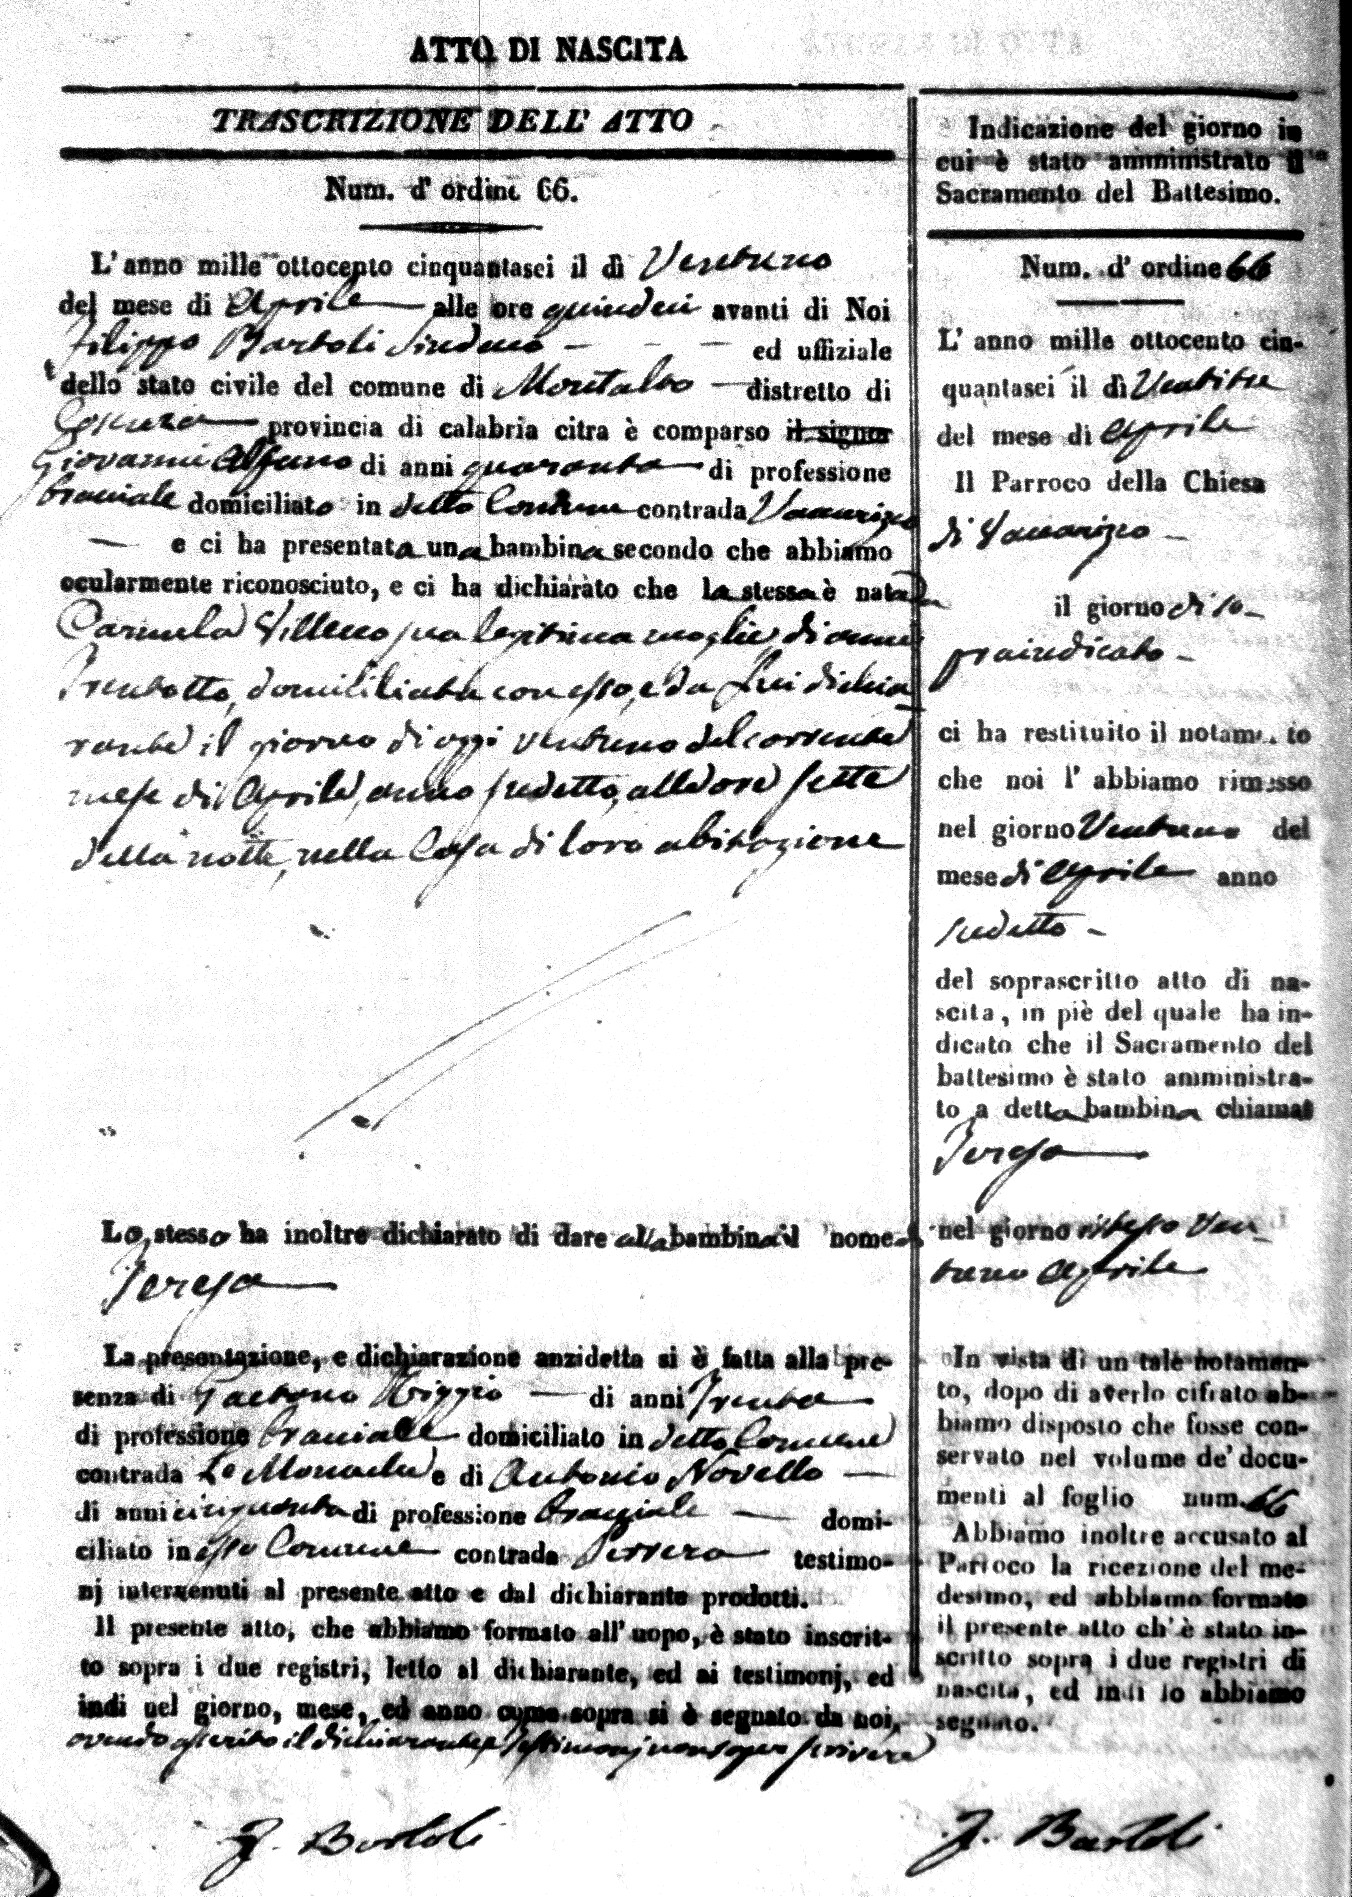 ATTO DI NASCITA
TRASCRIZIONE DELL' ATTO
Num. d' ordine 66.
L' anno mille ottocento cinquantasei il dì Ventuno
del mese di Aprile alle ore quindici avanti di Noi
Filippo Bartoli Sindaco ed uffiziale
dello stato civile del comune di Montalto distretto di
Cosenza provincia di calabria citra è comparso il signor
Giovanni Alfano di anni quaranta di professione
bracciale domiciliato in detto Comune contrada Vaccarizzo
e ci ha presentata una bambina secondo che abbiamo
ocularmente riconosciuto, e ci ha dichiarato che la stessa è nata da
Carmela Villecco sua legittima moglie, di anni
Trentotto, domiciliata con esso, e da Lui dichia
rante il giorno di oggi ventuno del corrente
mese di Aprile, anno sudetto, alle ore sette
della notte, nella Casa di loro abitazione
Lo stesso ha inoltre dichiarato di dare alla bambina il nome di
Teresa
La presentazione, e dichiarazione anzidetta si è fatta alla pre-
senza di Gaetano Riggio di anni Trenta
di professione bracciale domiciliato in detto Comune
contrada Lo Monache e di Antonio Novello
di anni cinquanta di professione bracciale domi-
ciliato in esso Comune contrada testimo-
nj intervenuti al presente atto e dal dichiarante prodotti.
Il presente atto, che abbiamo formato all' uopo, è stato inscrit-
to sopra i due registri, letto al dichiarante, ed ai testimonj, ed
indi nel giorno, mese, ed anno come sopra si è segnato da noi,
avendo asserito il dichiarante, e Testimonj non saper scrivere
F. Bartoli
Indicazione del giorno in
cui è stato amministrato il
Sacramento del Battesimo.
Num. d' ordine 66
L' anno mille ottocento cin-
quantasei il dì Ventitre
del mese di Aprile
Il Parroco della Chiesa
di Vaccarizzo
il giorno di so-
praindicato
ci ha restituito il notamento
che noi l' abbiamo rimesso
nel giorno Ventuno del
mese di Aprile anno
sudetto
del soprascritto atto di na-
scita, in piè del quale ha in-
dicato che il Sacramento del
battesimo è stato amministra-
to a detta bambina chiamat
Teresa
nel giorno istesso Ven
tuno Aprile
In vista di un tale notamen-
to, dopo di averlo cifrato ab-
biamo disposto che fosse con-
servato nel volume de' docu-
menti al foglio num. 66
Abbiamo inoltre accusato al
Parroco la ricezione del me-
desimo, ed abbiamo formato
il presente atto ch' è stato in-
scritto sopra i due registri di
nascita, ed indi lo abbiamo
segnato.
F. Bartoli